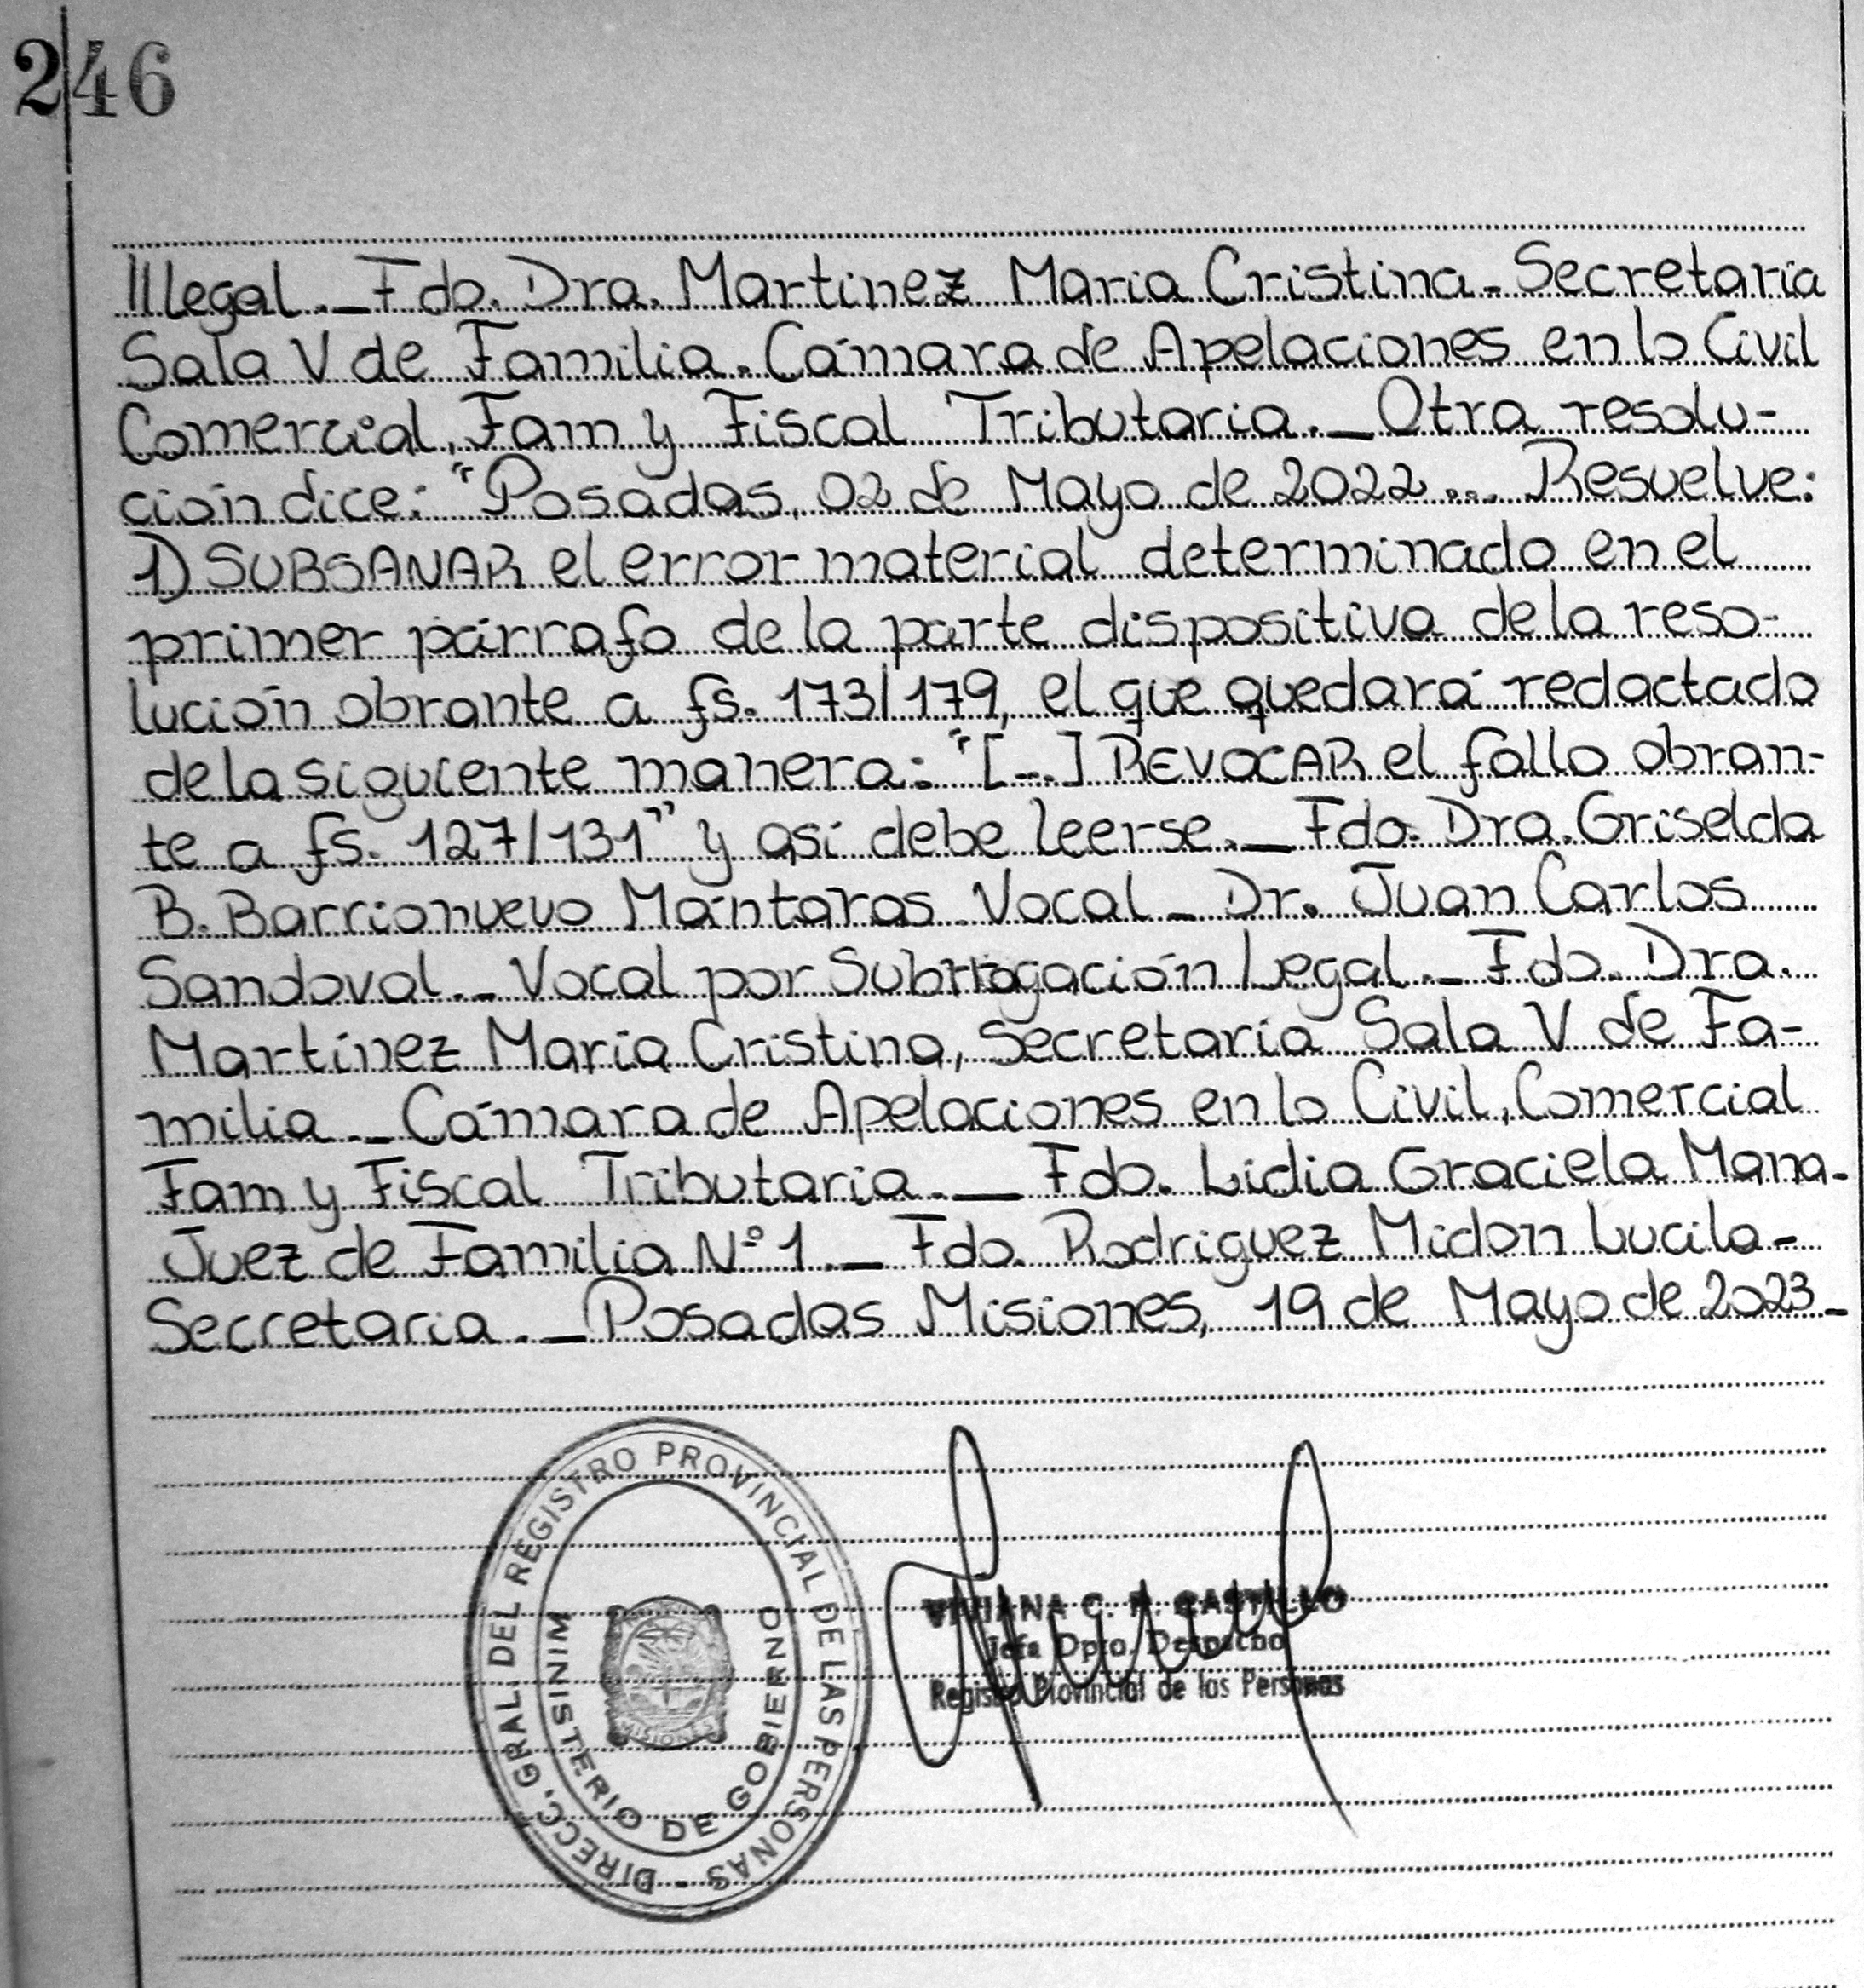 246
Illegal._Fdo. Dra. Martinez Maria Cristina_Secretaria
Sala V de Familia. Cámara de Apelaciones en lo Civil
Comercial, Fam y Fiscal Tributaria._Otra resolu-
ción dice: "Posadas, 02 de Mayo de 2022... Resuelve:
1) SUBSANAR el error material determinado en el
primer párrafo de la parte dispositiva de la reso-
lución obrante a fs. 173/179, el que quedará redactado
de la siguiente manera: "[...] REVOCAR el fallo obran-
te a fs. 127/131" y así debe leerse._Fdo. Dra. Griselda
B. Barrionuevo Mántaras Vocal_Dr. Juan Carlos
Sandoval._Vocal por Subrrogación Legal._Fdo. Dra.
Martínez María Cristina, Secretaría Sala V de Fa-
milia._Cámara de Apelaciones en lo Civil, Comercial
Fam y Fiscal Tributaria._Fdo. Lidia Graciela Mana-
Juez de Familia N° 1._Fdo. Rodriguez Midon Lucila-
Secretaria._Posadas Misiones, 19 de Mayo de 2023_
DIRECC. GRAL. DEL REGISTRO PROVINCIAL DE LAS PERSONAS -
MINISTERIO DE GOBIERNO
MISIONES
C. CASTILLO
Jefa Dpto. Despacho
Registro Provincial de las Personas